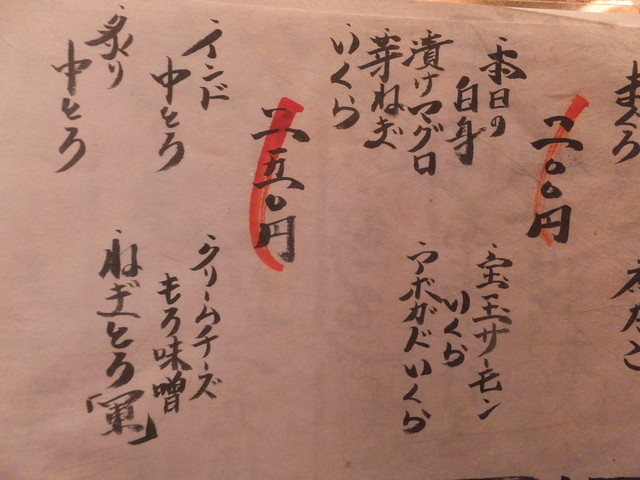 まぐろ
二〇〇円
本日の
白身
漬けマグロ
芽ねぎ
いくら
宝玉サーモン
いくら
アボガドいくら
二五〇円
インド
中とろ
炙り
中とろ
クリームチーズ
もろ味噌
ねぎとろ「軍」